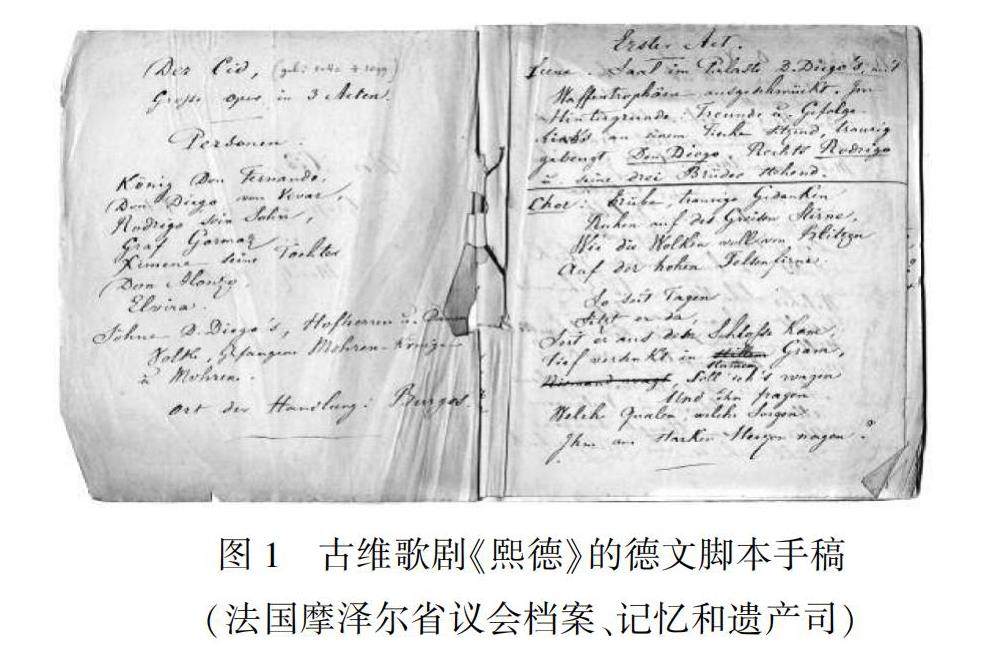 Der Cid, (geb: 1040 † 1099)
Große Oper in 3 Acten.
Personen.
König Don Fernando,
Don Diego von Vivar,
Rodrigo sein Sohn,
Graf Gormaz
Ximene seine Tochter
Don Alonzo,
Elvira.
Söhne D. Diego's, Hofherren u. Damen
Volk, gefangene Mohren-Könige
u. Mohren.
Ort der Handlung: Burgos.
Erster Act.
Scene. Saal im Palaste D. Diego's, mit
Waffentrophäen ausgeschmückt. Im
Hintergrunde Freunde u. Gefolge
Links an einem Tische sitzend, traurig
gebeugt Don Diego, Rechts Rodrigo
u. seine drei Brüder stehend.
Chor: Trübe, traurige Gedanken
Ruhen auf des Greisen Stirne,
Wie die Wolken voll von Blitzen
Auf der hohen Felsenfirne.
So seit Tagen
Sitzt er da,
Seit er aus dem Schloße kam,
Tief versenkt in stummen Gram,
Soll ich's wagen
Und ihn fragen
Welche Qualen, welche Sorgen
Ihm am starken Herzen nagen?
图 1　古维歌剧《熙德》的德文脚本手稿
(法国摩泽尔省议会档案、记忆和遗产司)